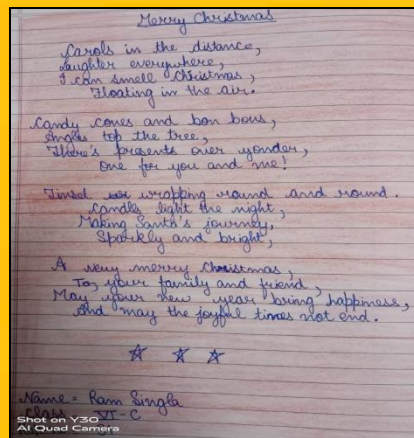 Merry Christmas
Carols in the distance,
Laughter everywhere,
I can smell Christmas,
Floating in the air.
Candy Cones and bon bons,
Angles top the tree,
There's presents over yonder,
One for you and me!
Tinsel wrapping round and round.
Candles light the night,
Making Santa's journey,
Sparkly and bright,
A very merry Christmas,
To, your family and friend,
May your new year bring happiness,
And may the joyful times not end.
Name = Ram Singla
Class VI-C
Shot on Y30
AI Quad Camera